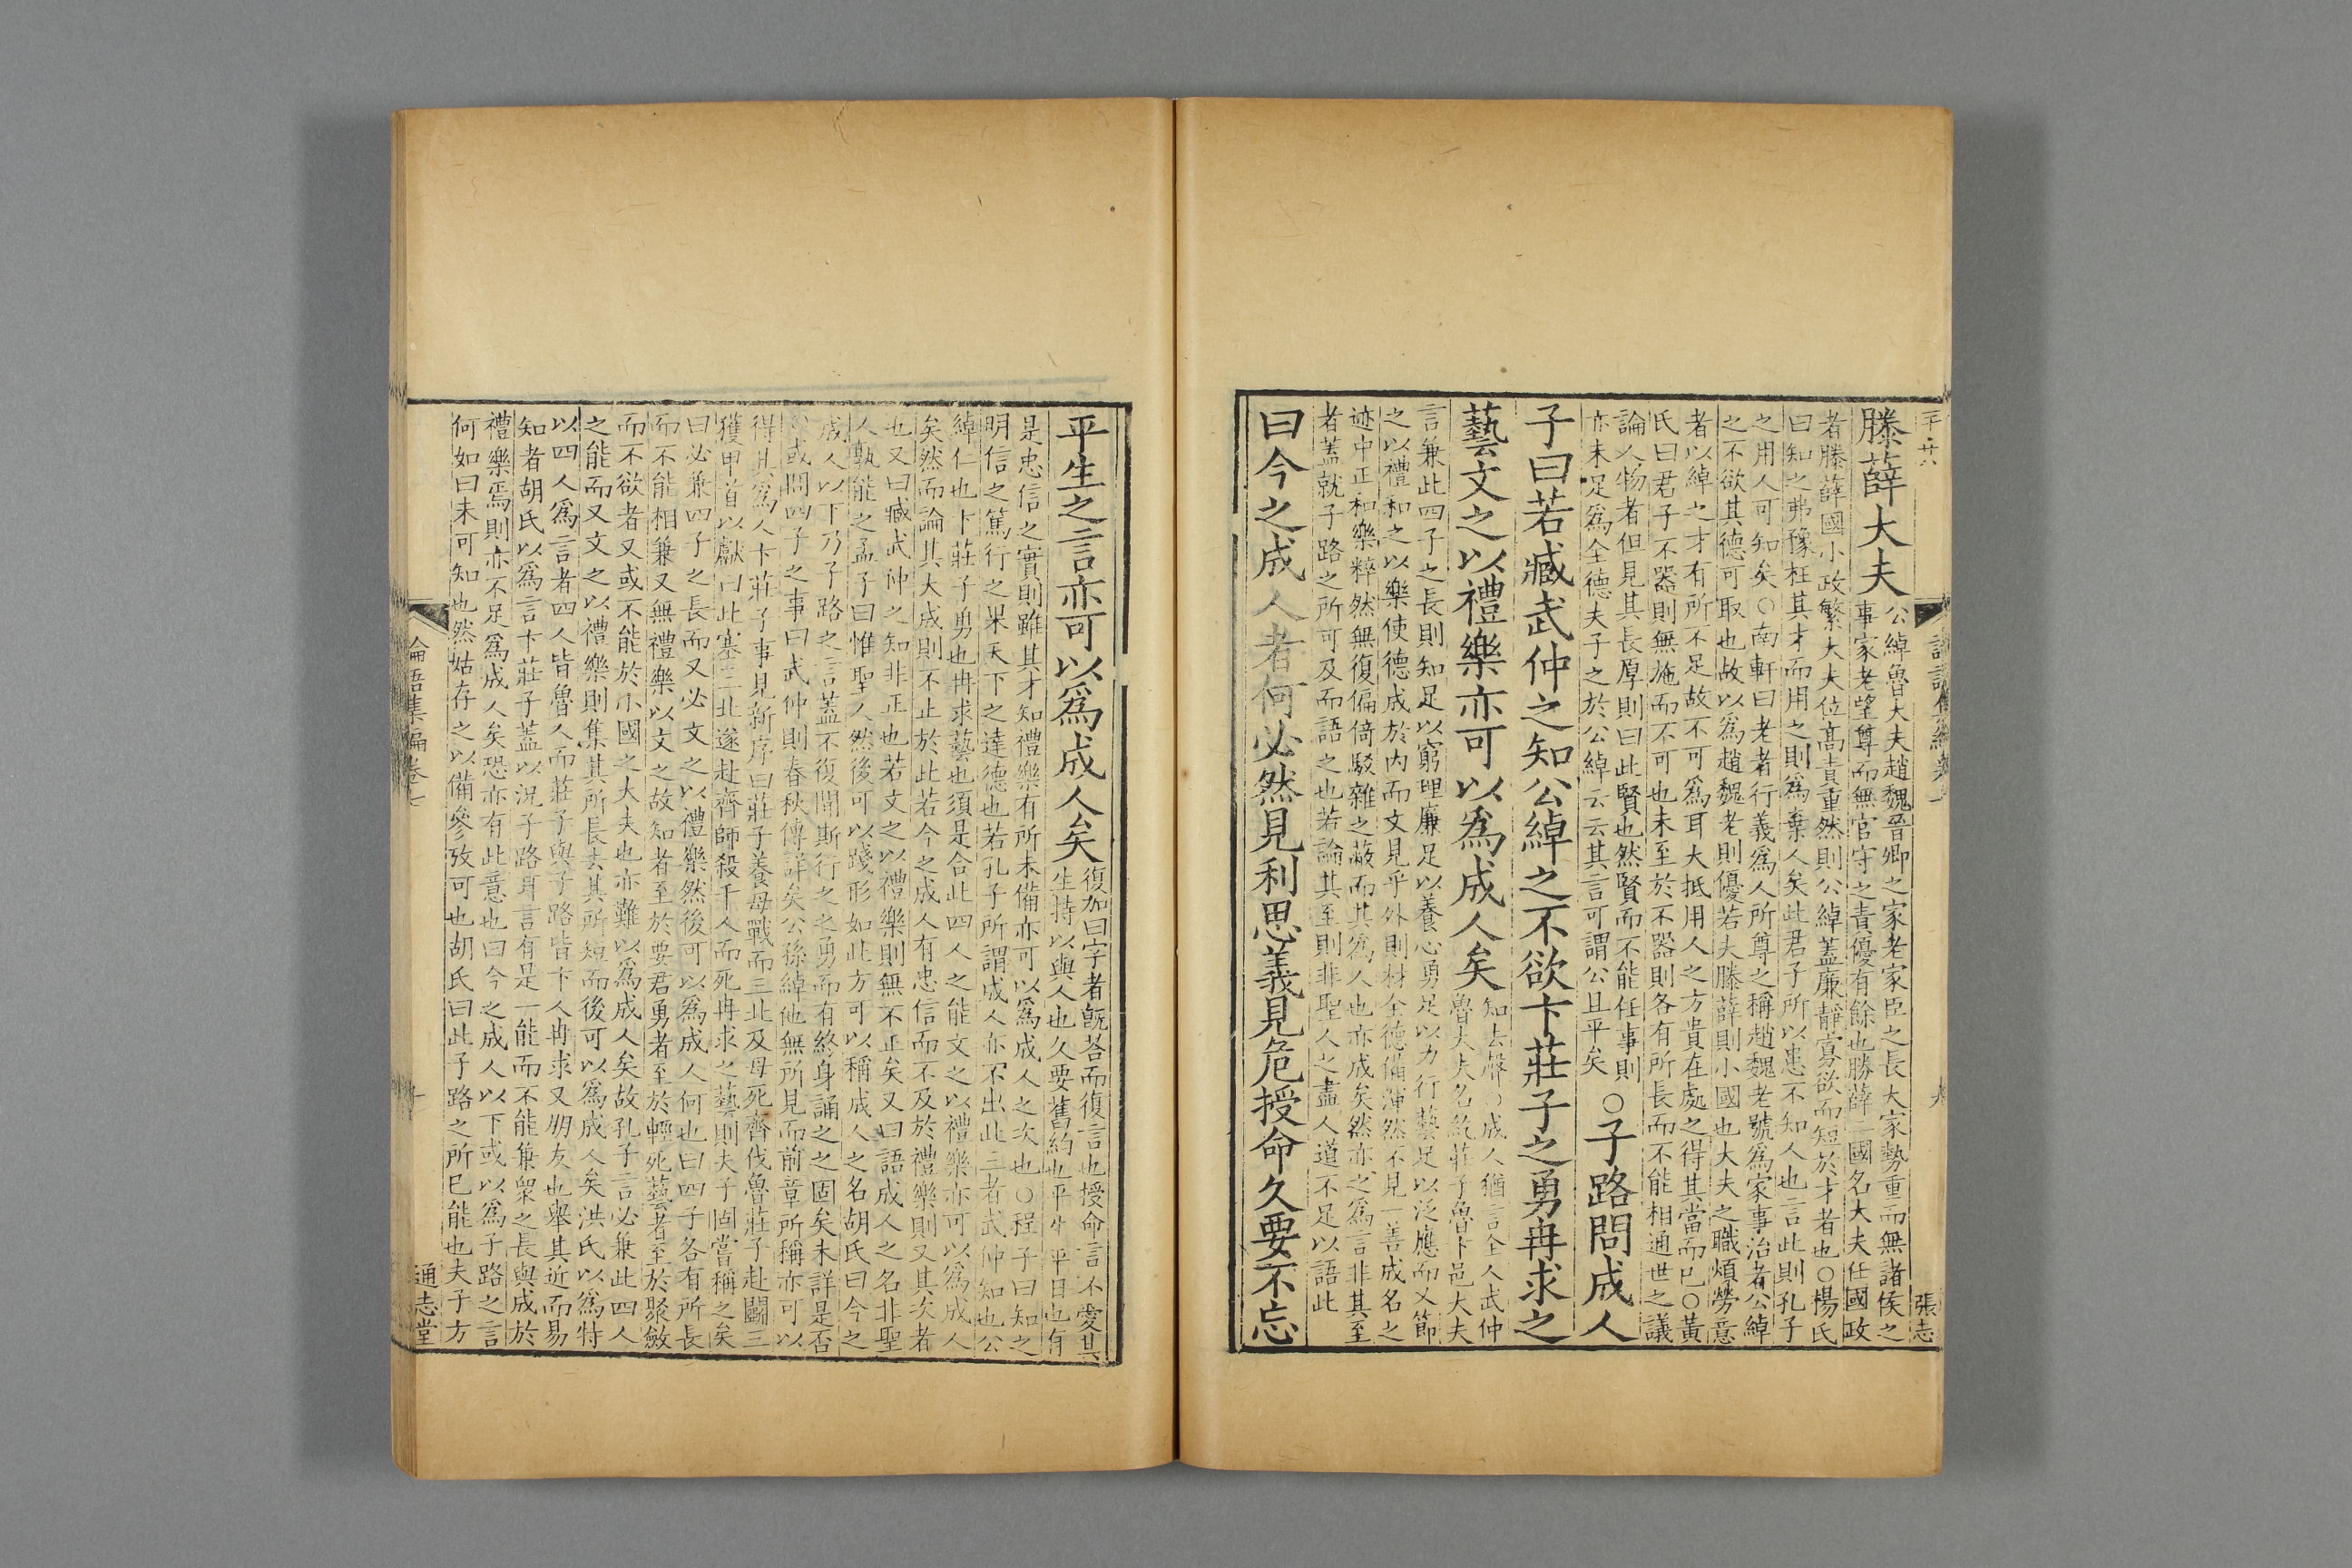 滕薛大夫
公綽魯大夫趙魏晉卿之家老家臣之長大家勢重而無諸侯之
事家老望尊而無官守之責優有餘也滕薛二國名大夫任國政
者滕薛國小政繁大夫位高責重然則公綽蓋廉靜寡欲而短於才者也○楊氏
曰知之弗豫枉其才而用之則爲棄人矣此君子所以患不知人也言此則孔子
之用人可知矣○南軒曰老者行義爲人所尊之稱趙魏老號爲家事治者公綽
之不欲其德可取也故以爲趙魏老則優若夫滕薛則小國也大夫之職煩勞意
者以綽之才有所不足故不可爲耳大抵用人之方貴在處之得其當而已○黃
氏曰君子不器則無施而不可也未至於不器則各有所長而不能相通世之議
論人物者但見其長厚則曰此賢也然賢而不能任事則
亦未足爲全德夫子之於公綽云云其言可謂公且平矣
○子路問成人
子曰若臧武仲之知公綽之不欲卞莊子之勇冉求之
藝文之以禮樂亦可以爲成人矣
知去聲○成人猶言全人武仲
魯大夫名紇莊子魯卞邑大夫
言兼此四子之長則知足以窮理廉足以養心勇足以力行藝足以泛應而又節
之以禮和之以樂使德成於內而文見乎外則材全德備渾然不見一善成名之
迹中正和樂粹然無復偏倚駁雜之蔽而其爲人也亦成矣然亦之爲言非其至
者蓋就子路之所可及而語之也若論其至則非聖人之盡人道不足以語此
曰今之成人者何必然見利思義見危授命久要不忘
張志
平生之言亦可以爲成人矣
復加曰字者旣荅而復言也授命言不愛其
生持以與人也久要舊約也平生平日也有
是忠信之實則雖其才知禮樂有所未備亦可以爲成人之次也○程子曰知之
明信之篤行之果天下之達德也若孔子所謂成人亦不出此三者武仲知也公
綽仁也卞莊子勇也冉求藝也須是合此四人之能文之以禮樂亦可以爲成人
矣然而論其大成則不止於此若今之成人有忠信而不及於禮樂則又其次者
也又曰臧武仲之知非正也若文之以禮樂則無不正矣又曰語成人之名非聖
人孰能之孟子曰惟聖人然後可以踐形如此方可以稱成人之名胡氏曰今之
成人以下乃子路之言蓋不復聞斯行之之勇而有終身誦之之固矣未詳是否
或問四子之事曰武仲則春秋傳詳矣公孫綽他無所見而前章所稱亦可以
得其爲人卞莊子事見新序曰莊子養母戰而三北及母死齊伐魯莊子赴鬭三
獲甲首以獻曰此塞三北遂赴齊師殺千人而死冉求之藝則夫子固嘗稱之矣
曰必兼四子之長而又必文之以禮樂然後可以爲成人何也曰四子各有所長
而不能相兼又無禮樂以文之故知者至於要君勇者至於輕死藝者至於聚斂
而不欲者又或不能於小國之大夫也亦難以爲成人矣故孔子言必兼此四人
之能而又文之以禮樂則集其所長去其所短而後可以爲成人矣洪氏以爲特
以四人爲言者四人皆魯人而莊子與子路皆卞人冉求又朋友也舉其近而易
知者胡氏以爲言卞莊子蓋以況子路耳言有是一能而不能兼衆之長與成於
禮樂焉則亦不足爲成人矣恐亦有此意也曰今之成人以下或以爲子路之言
何如曰未可知也然姑存之以備參攷可也胡氏曰此子路之所已能也夫子方
論語集編卷七
通志堂